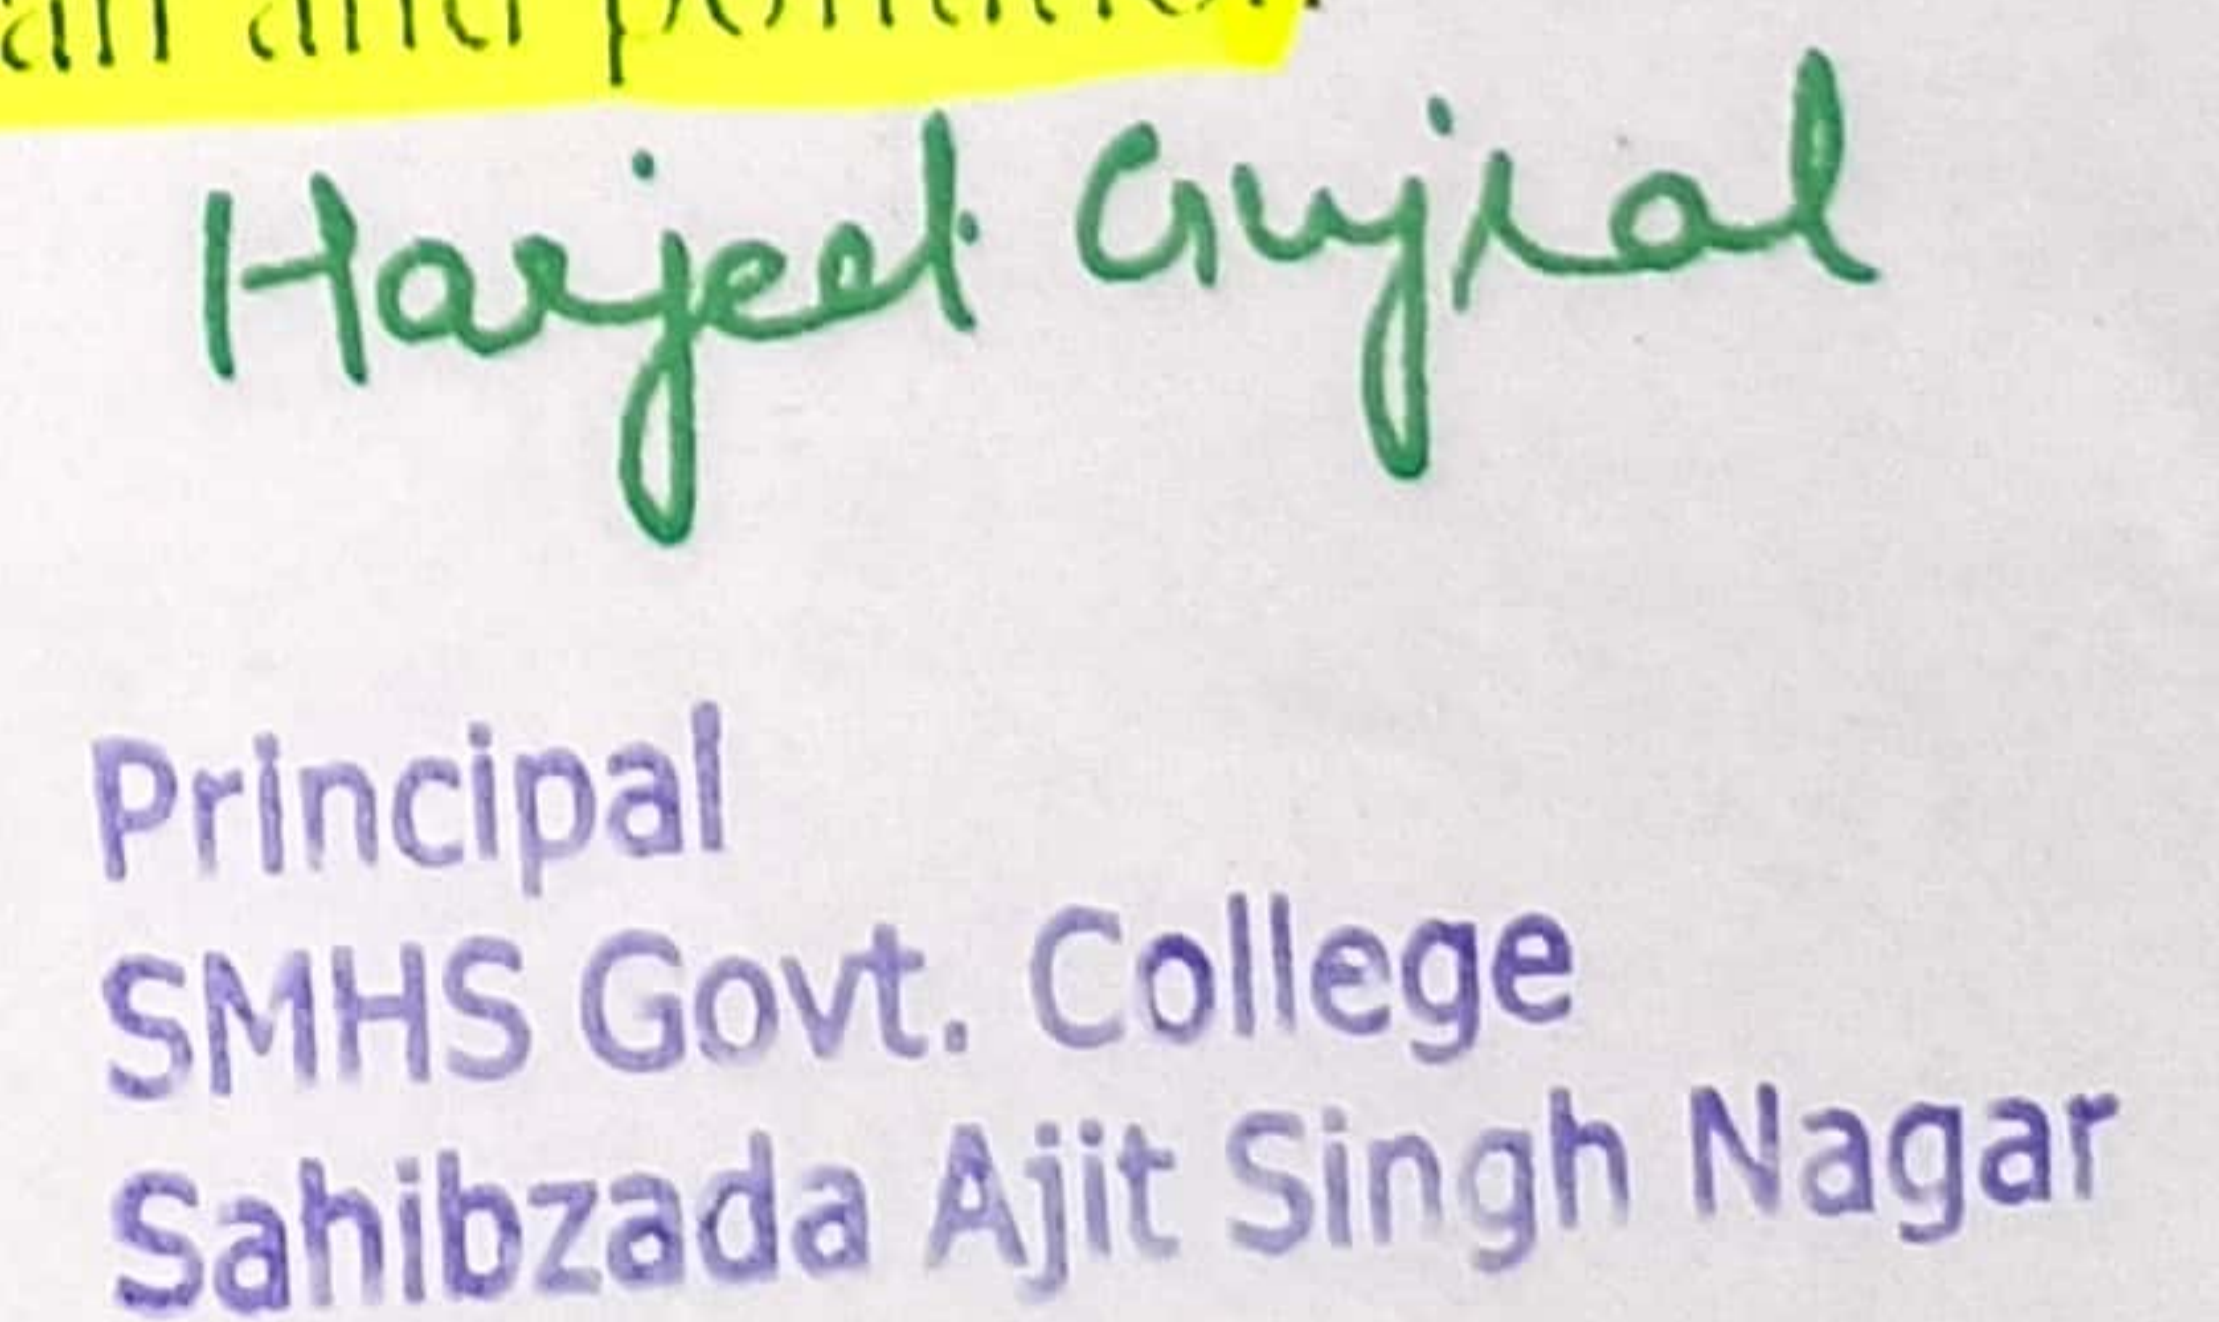 and
Harjeet Gujral
Principal
SMHS Govt. College
Sahibzada Ajit Singh Nagar